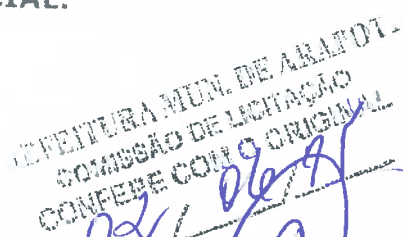 CIAL.
PREFEITURA MUN. DE ARAPOT
COMISSÃO DE LICITAÇÃO
CONFERE COM O ORIGINAL
02/06/